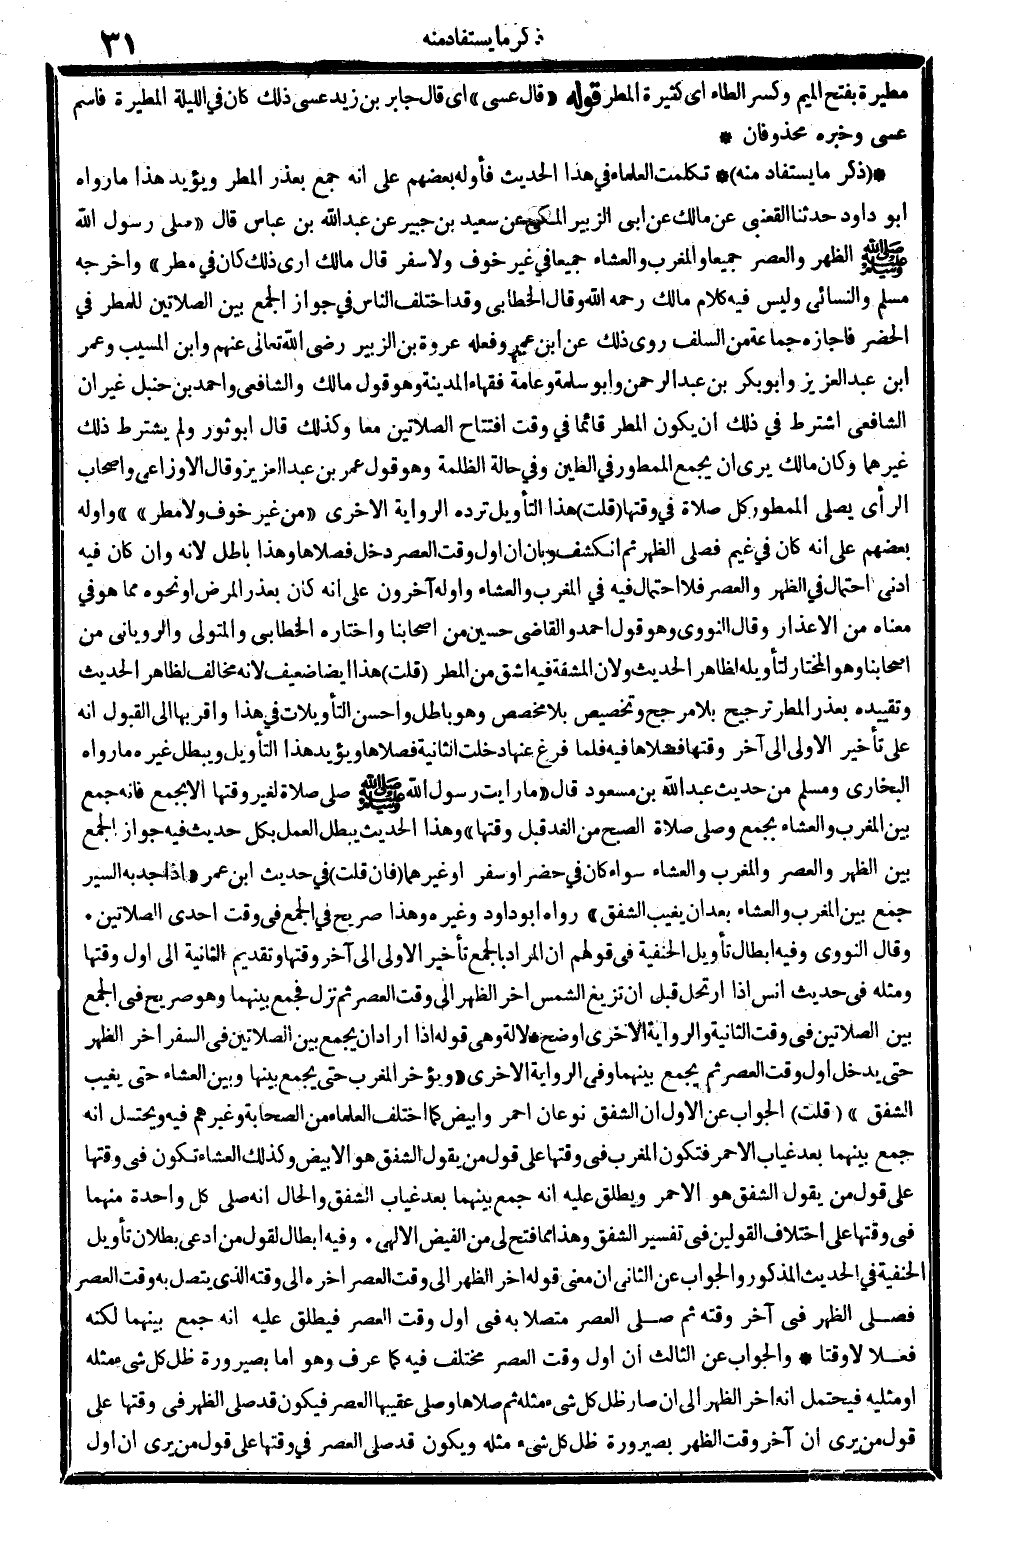 ذكر ما يستفاد منه ٣١
مطيرة بفتح الميم وكسر الطاء اى كثيرة المطر قوله «قال عسى» اى قال جابر بن زيد عسى ذلك كان في الليلة المطيرة فاسم
عسى وخبره محذوفان *
*(ذكر ما يستفاد منه)* تكلمت العلماء في هذا الحديث فأوله بعضهم على انه جمع بعذر المطر ويؤيد هذا ما رواه
ابو داود حدثنا القعنبى عن مالك عن ابى الزبير المكى عن سعيد بن جبير عن عبدالله بن عباس قال «صلى رسول الله
ﷺ الظهر والعصر جميعا والمغرب والعشاء جميعا في غير خوف ولا سفر قال مالك ارى ذلك كان في مطر» واخرجه
مسلم والنسائى وليس فيه كلام مالك رحمه الله وقال الخطابى وقد اختلف الناس في جواز الجمع بين الصلاتين للمطر في
الحضر فاجازه جماعة من السلف روى ذلك عن ابن عمر وفعله عروة بن الزبير رضى الله تعالى عنهم وابن المسيب وعمر
ابن عبدالعزيز وابو بكر بن عبدالرحمن وابو سلمة وعامة فقهاء المدينة وهو قول مالك والشافعى واحمد بن حنبل غير ان
الشافعى اشترط في ذلك ان يكون المطر قائما في وقت افتتاح الصلاتين معا وكذلك قال ابو ثور ولم يشترط ذلك
غيرهما وكان مالك يرى ان يجمع الممطور في الطين وفي حالة الظلمة وهو قول عمر بن عبد العزيز وقال الاوزاعى واصحاب
الرأى يصلى الممطور كل صلاة في وقتها (قلت) هذا التأويل ترده الرواية الاخرى «من غير خوف ولا مطر» » واوله
بعضهم على انه كان في غيم فصلى الظهر ثم انكشف وبان ان اول وقت العصر دخل فصلاها وهذا باطل لانه وان كان فيه
ادنى احتمال في الظهر والعصر فلا احتمال فيه في المغرب والعشاء واوله آخرون على انه كان بعذر المرض او نحوه مما هو في
معناه من الاعذار وقال النووى وهو قول احمد والقاضى حسين من اصحابنا واختاره الخطابى والمتولى والرويانى من
اصحابنا وهو المختار لتأويله لظاهر الحديث ولان المشقة فيه اشق من المطر (قلت) هذا ايضا ضعيف لانه مخالف لظاهر الحديث
وتقييده بعذر المطر ترجيح بلا مرجح وتخصيص بلا مخصص وهو باطل واحسن التأويلات في هذا واقربها الى القبول انه
على تأخير الاولى الى آخر وقتها فصلاها فيه فلما فرغ عنها دخلت الثانية فصلاها ويؤيد هذا التأويل ويبطل غيره ما رواه
البخارى ومسلم من حديث عبدالله بن مسعود قال «ما رايت رسول الله ﷺ صلى صلاة لغير وقتها الا بجمع فانه جمع
بين المغرب والعشاء بجمع وصلى صلاة الصبح من الغد قبل وقتها» وهذا الحديث يبطل العمل بكل حديث فيه جواز الجمع
بين الظهر والعصر والمغرب والعشاء سواء كان في حضر او سفر او غيرهما (فان قلت) في حديث ابن عمر «اذا جد به السير
جمع بين المغرب والعشاء بعد ان يغيب الشفق» رواه ابو داود وغيره وهذا صريح في الجمع فى وقت احدى الصلاتين .
وقال النووى وفيه ابطال تأويل الحنفية فى قولهم ان المراد بالجمع تأخير الاولى الى آخر وقتها وتقديم الثانية الى اول وقتها
ومثله فى حديث انس اذا ارتحل قبل ان تزيغ الشمس اخر الظهر الى وقت العصر ثم نزل فجمع بينهما وهو صريح فى الجمع
بين الصلاتين فى وقت الثانية والرواية الاخرى اوضح دلالة وهى قوله اذا اراد ان يجمع بين الصلاتين فى السفر اخر الظهر
حتى يدخل اول وقت العصر ثم يجمع بينهما وفى الرواية الاخرى «ويؤخر المغرب حتى يجمع بينها وبين العشاء حتى يغيب
الشفق» (قلت) الجواب عن الاول ان الشفق نوعان احمر وابيض كما اختلف العلماء من الصحابة وغيرهم فيه ويحتمل انه
جمع بينهما بعد غياب الاحمر فتكون المغرب فى وقتها على قول من يقول الشفق هو الابيض وكذلك العشاء تكون فى وقتها
على قول من يقول الشفق هو الاحمر ويطلق عليه انه جمع بينهما بعد غياب الشفق والحال انه صلى كل واحدة منهما
فى وقتها على اختلاف القولين فى تفسير الشفق وهذا مما فتح لى من الفيض الالهى . وفيه ابطال لقول من ادعى بطلان تأويل
الحنفية في الحديث المذكور والجواب عن الثانى ان معنى قوله اخر الظهر الى وقت العصر اخره الى وقته الذى يتصل به وقت العصر
فصلى الظهر فى آخر وقته ثم صلى العصر متصلا به فى اول وقت العصر فيطلق عليه انه جمع بينهما لكنه
فعلا لا وقتا * والجواب عن الثالث ان اول وقت العصر مختلف فيه كما عرف وهو اما بصيرورة ظل كل شىء مثله
او مثليه فيحتمل انه اخر الظهر الى ان صار ظل كل شىء مثله ثم صلاها وصلى عقيبها العصر فيكون قد صلى الظهر فى وقتها على
قول من يرى ان آخر وقت الظهر بصيرورة ظل كل شىء مثله ويكون قد صلى العصر في وقتها على قول من يرى ان اول